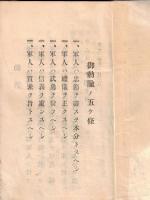 御勅諭ノ五ケ條
一、軍人ハ忠節ヲ盡スヲ本分トスヘシ
一、軍人ハ禮儀ヲ正クスヘシ
一、軍人ハ武勇ヲ尚フヘシ
一、軍人ハ信義ヲ重ンスヘシ
一、軍人ハ質素ヲ旨トスヘシ